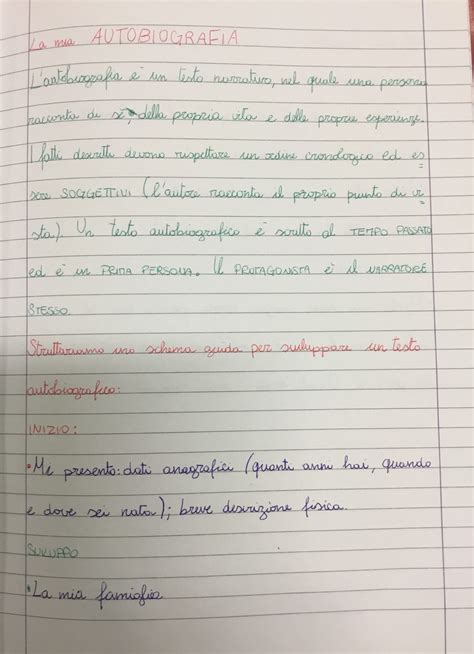 La mia AUTOBIOGRAFIA
L'autobiografia è un testo narrativo, nel quale una persona
racconta di sé, della propria vita e delle proprie esperienze.
I fatti descritti devono rispettare un ordine cronologico ed es
sere SOGGETTIVI (l'autore racconta il proprio punto di vi
sta). Un testo autobiografico è scritto al TEMPO PASSATO
ed è in PRIMA PERSONA. Il PROTAGONISTA è il NARRATORE
STESSO.
Strutturiamo uno schema guida per sviluppare un testo
autobiografico:
INIZIO:
•Mi presento: dati anagrafici (quanti anni hai, quando
e dove sei nata); breve descrizione fisica.
SVILUPPO
•La mia famiglia